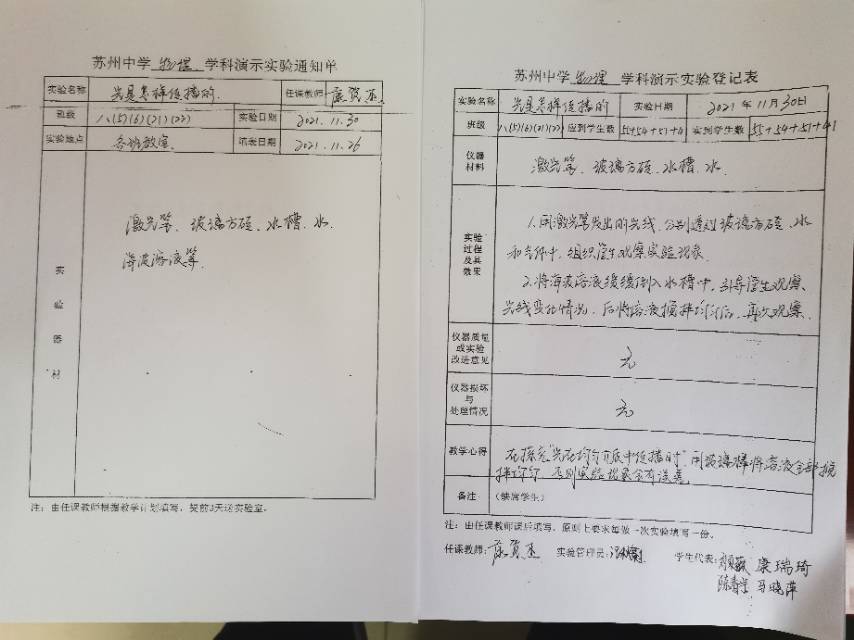 苏州中学 物理 学科演示实验通知单
实验名称 光是怎样传播的. 任课教师
班级 八(5)(6)(21)(22) 实验日期 2021.11.30
实验地点 各班教室. 填表日期 2021.11.26
实验器材
激光笔、玻璃方砖、水槽、水、
海波溶液等.
注:由任课教师根据教学计划填写,提前3天送实验室。
苏州中学 物理 学科演示实验登记表
实验名称 光是怎样传播的 实验日期 2021年11月30日
班级 八(5)(6)(21)(22) 应到学生数 55+54+51+41 实到学生数 55+54+51+41
仪器材料 激光笔、玻璃方砖、水槽、水.
实验过程及其效果
1.用激光笔发出的光线,分别透过玻璃方砖、水
和空气中,组织学生观察实验现象.
2.将海波溶液缓缓倒入水槽中,引导学生观察
光线变化情况,后将溶液搅拌均匀后,再次观察.
仪器质量或实验改进意见 无
仪器损坏与处理情况 无
教学心得 在探究“光在均匀介质中传播时”,用玻璃棒将溶液全部搅
拌均匀,否则实验现象会有误差.
备注 (缺席学生)
注:由任课教师课后填写,原则上要求每做一次实验填写一份。
任课教师: 实验管理员: 学生代表: 康瑞琦
马晓萍